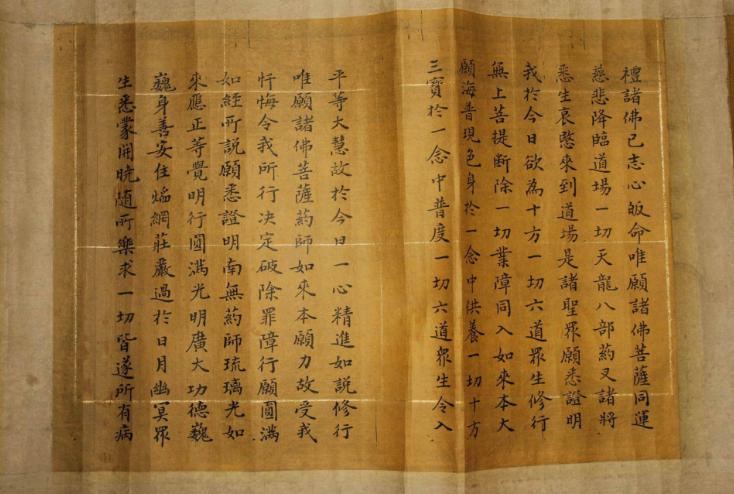 禮諸佛已志心皈命唯願諸佛菩薩同運
慈悲降臨道場一切天龍八部药叉諸將
悉生哀愍來到道場是諸聖眾願悉證明
我於今日欲為十方一切六道眾生修行
無上菩提斷除一切業障同入如來本大
願海普現色身於一念中供養一切十方
三寶於一念中普度一切六道眾生令入
平等大慧故於今日一心精進如説修行
唯願諸佛菩薩药師如來本願力故受我
忏悔令我所行決定破除罪障行願圓滿
如經所説願悉證明南無药師琉璃光如
來應正等覺明行圓滿光明廣大功德巍
巍身善安住焰網莊嚴過於日月幽冥眾
生悉蒙開曉随所樂求一切皆遂所有病